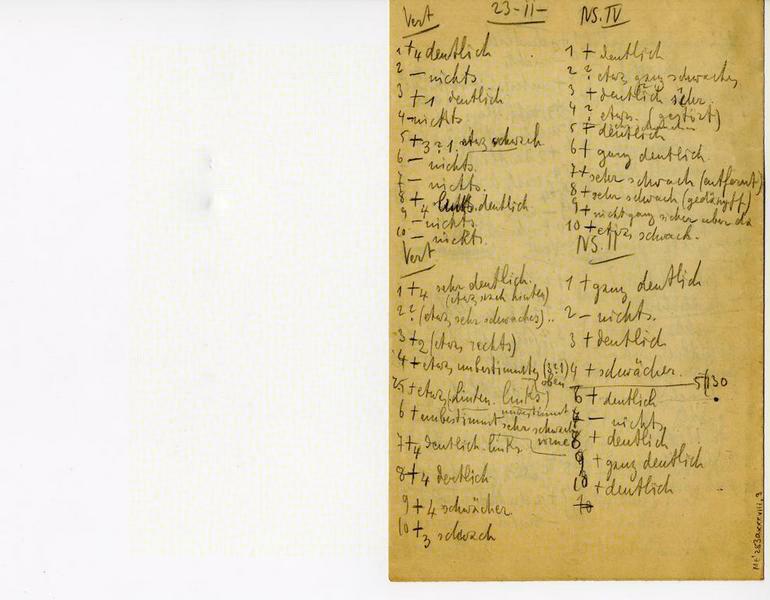 23-II-
Vert
1 +4 deutlich
2 - nichts
3 +1 deutlich
4 - nichts
5 +3?1 etwas schwach
6 - nichts.
7 - nichts.
8 +4 deutlich
9 - nichts
10 - nichts.
Vert
1 +4 sehr deutlich.
(etwas nach hinten)
2 ? (etwas sehr schwaches)..
3 +2 (etwas rechts)
4 + etwas unbestimmtes (3?1)
oben
5 + etwas (hinten links)
6 + unbestimmt sehr schwach
unbestimmt
vorne
7 +4 deutlich links
8 +4 deutlich
9 +4 schwächer
10 +3 schwach
NS. IV
1 + deutlich
2 ? etwas ganz schwaches
3 + deutlich sehr.
4 ? etwas. (gestört)
5 + deutlich
6 + ganz deutlich.
7 + sehr schwach (entfernt)
8 + sehr schwach (gedämpft)
9 + nicht ganz sicher aber da
10 + etwas schwach.
NS. II
1 + ganz deutlich
2 - nichts.
3 + deutlich
4 + schwächer.
6 + deutlich
- nichts
8 + deutlich
9 + ganz deutlich
10 + deutlich